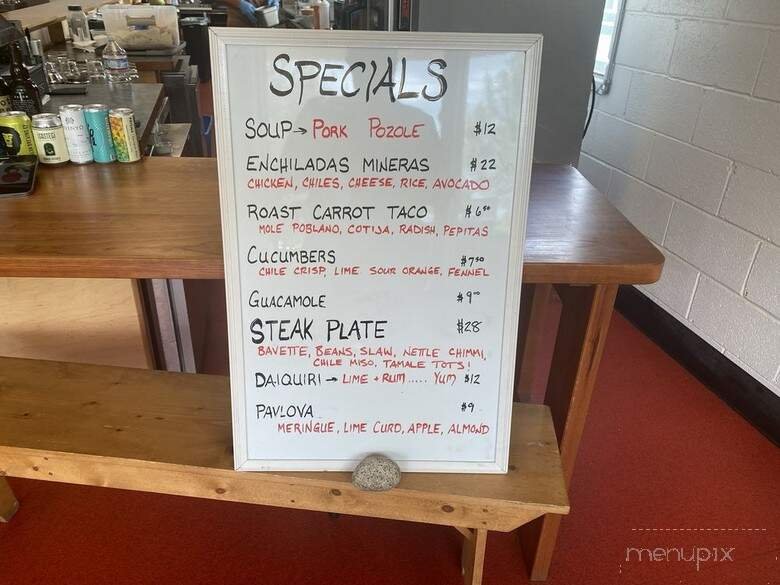 SPECIALS
SOUP → PORK POZOLE $12
ENCHILADAS MINERAS $22
CHICKEN, CHILES, CHEESE, RICE, AVOCADO
ROAST CARROT TACO $6⁵⁰
MOLE POBLANO, COTIJA, RADISH, PEPITAS
CUCUMBERS $7⁵⁰
CHILE CRISP, LIME SOUR ORANGE, FENNEL
GUACAMOLE $9⁰⁰
STEAK PLATE $28
BAVETTE, BEANS, SLAW, NETTLE CHIMMI,
CHILE MISO, TAMALE TOTS!
DAIQUIRI → LIME + RUM ..... YUM $12
PAVLOVA $9
MERINGUE, LIME CURD, APPLE, ALMOND
menupix